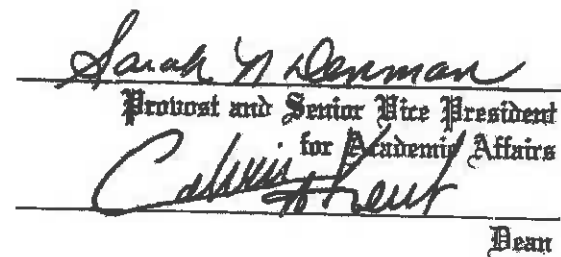 Sarah N Denman
Provost and Senior Vice President
for Academic Affairs
Calvin A Kent
Dean